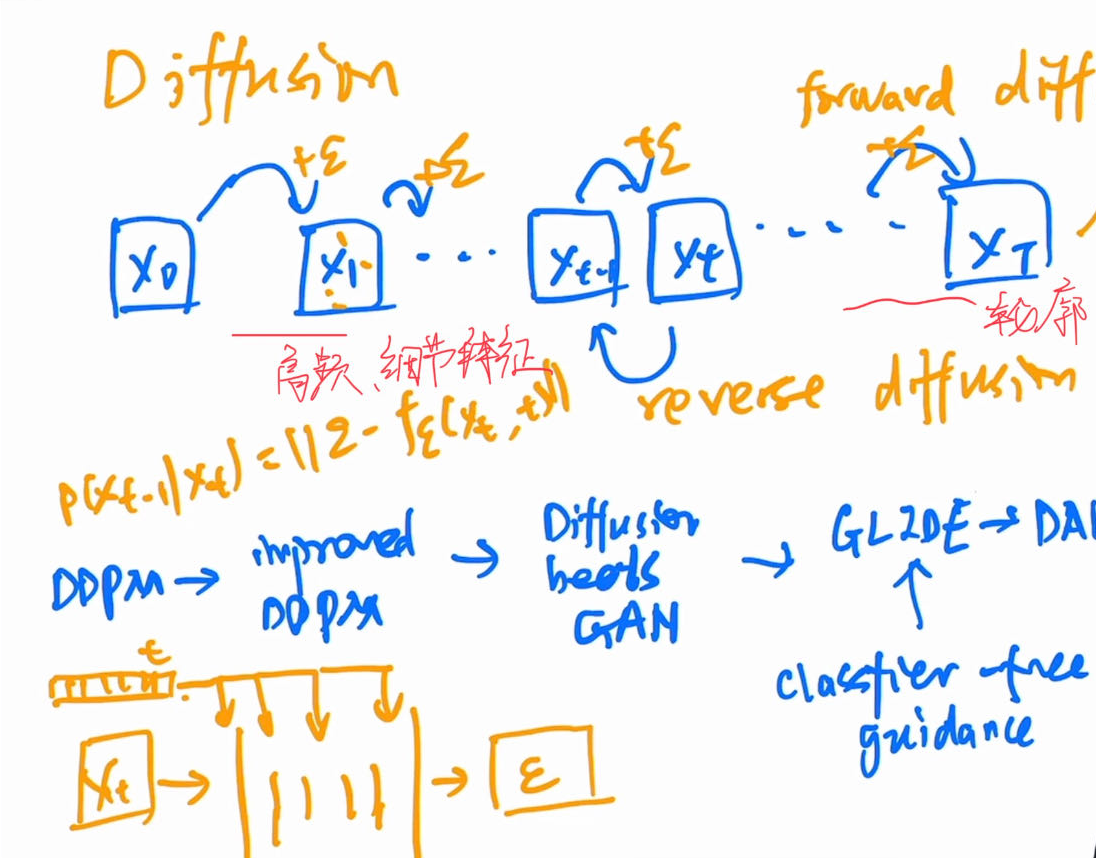 Diffusion
forward diff
+ε +ε +ε +ε
X0 X1 ... Xt-1 Xt ... XT
高频、细节特征
轮廓
reverse diffusion
p(Xt-1|Xt) = ||ε - fε(Xt, t)||
DDPM → improved DDPM → Diffusion beats GAN → GLIDE → DAL
classfier-free
guidance
t
Xt → → ε